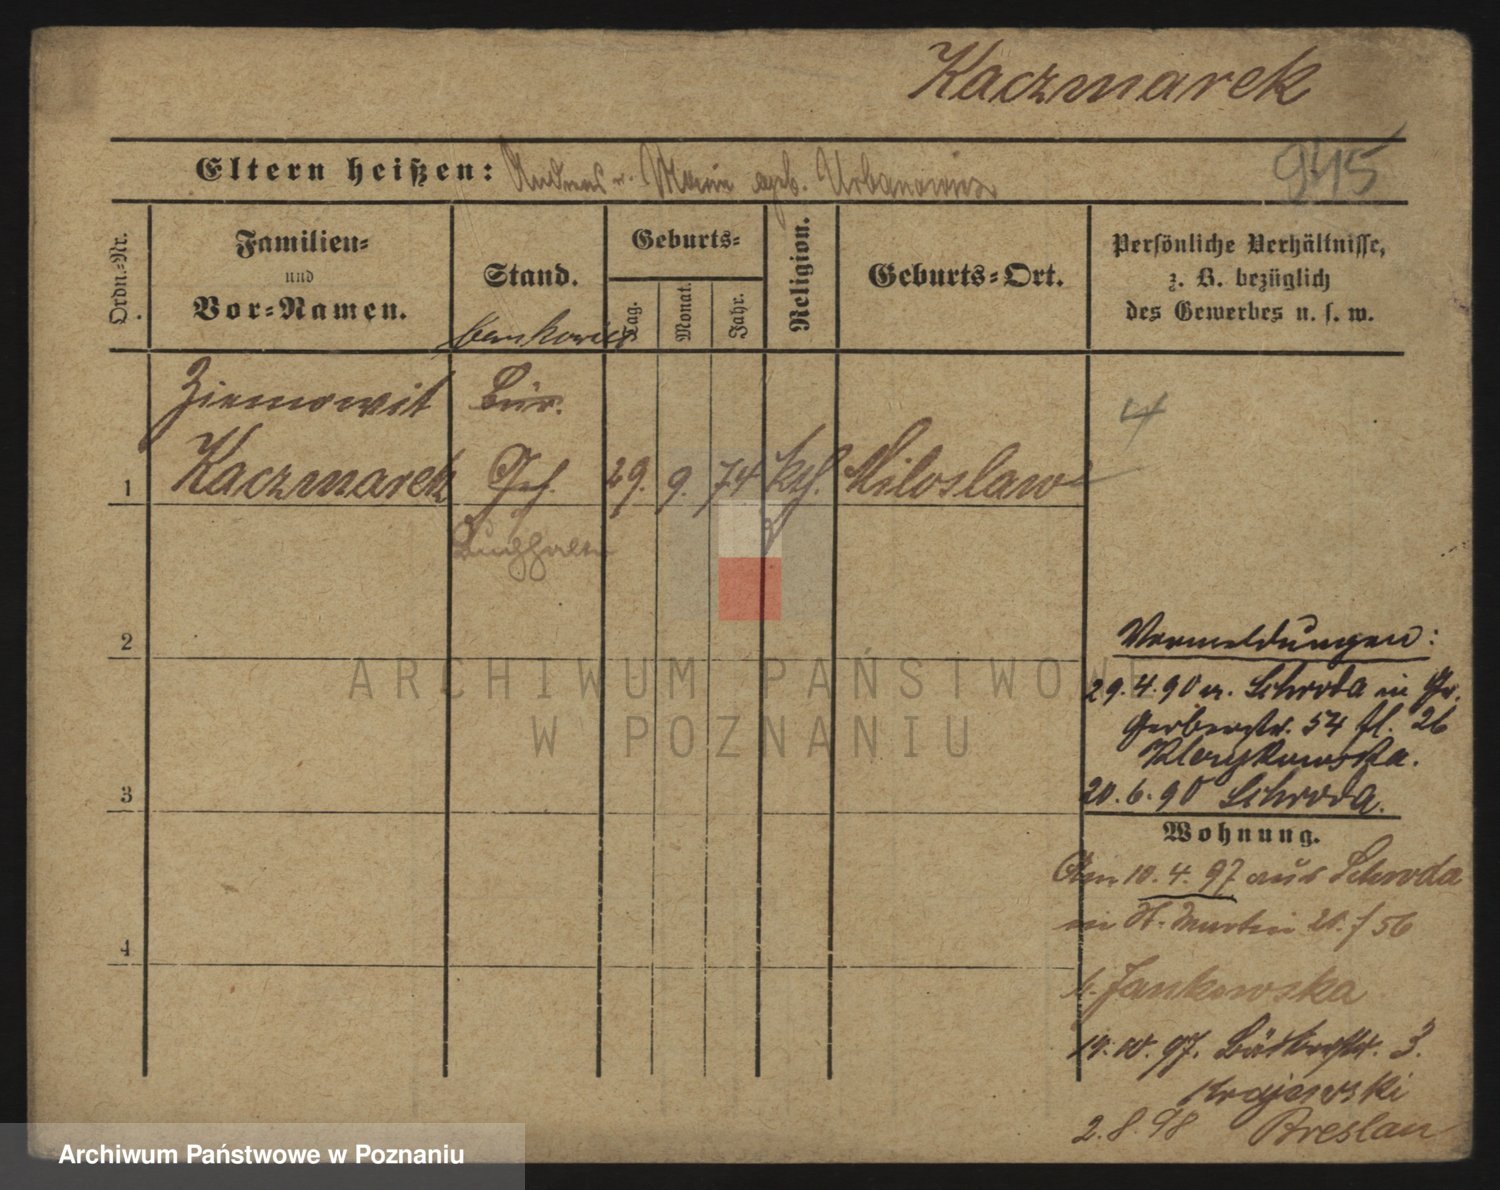 Kaczmarek
945
Eltern heißen: Andreas u. Marie geb. Urbanowicz
Ordn.-Nr.
Familien-
und
Vor-Namen.
Stand.
Geburts-
Tag.
Monat.
Jahr.
Religion.
Geburts-Ort.
Persönliche Verhältnisse,
z. B. bezüglich
des Gewerbes u. s. w.
Ziemowit Bür.
4
1 Kaczmarek Geh. 29. 9. 74 kth. Miloslaw
Buchhalter
2
3
4
Vormeldungen:
29. 4. 90 v. Schroda in Gr.
Gerberstr. 54 bl. 26
20. 6. 90 Schroda.
Wohnung.
Am 10. 4. 97 aus Schroda
in St. Martin 20. / 56
b. Jankowska
14. 10. 97. Bäckerstr. 3.
Krajewski
2. 8. 98 Breslau
ARCHIWUM PAŃSTWOWE
W POZNANIU
Archiwum Państwowe w Poznaniu